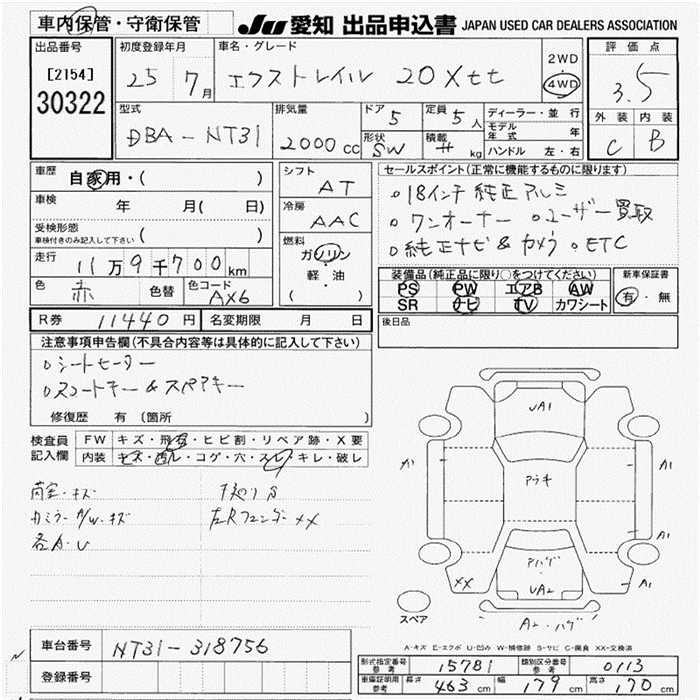 車内保管・守衛保管
JU 愛知 出品申込書 JAPAN USED CAR DEALERS ASSOCIATION
出品番号
[2154]
30322
初度登録年月
25 7月
車名・グレード
エクストレイル 20Xtt
2WD
4WD
評価点
3.5
外装 内装
C B
型式
DBA-NT31
排気量
2000 cc
ドア 5
形状 SW
定員 5人
積載 # kg
ディーラー・並行
モデル年式 年
ハンドル 左・右
車歴
自家用・( )
車検 年 月( 日)
受検形態
車検付きのみ記入して下さい ( )
走行 11万9千700km
色 赤 色替 色コード AX6
シフト
AT
冷房
AAC
燃料
ガソリン
軽・油
( )
セールスポイント(正常に機能するものに限ります)
。18インチ純正アルミ
。ワンオーナー 。ユーザー買取
。純正ナビ&カメラ 。ETC
装備品(純正品に限り○をつけてください)
PS PW エアB AW
SR ナビ TV カワシート
新車保証書
有・無
R券 11440円 名変期限 月 日
後日品
注意事項申告欄(不具合内容等は具体的に記入して下さい)
。シートヒーター
。スマートキー&スペアキー
修復歴 有 (箇所 )
検査員記入欄
FW キズ・飛石・ヒビ割・リペア跡・X要
内装 キズ・汚レ・コゲ・穴・スレ・キレ・破レ
キズ
A/W.キズ
各A.U
左Rフェンダー XX
UA1
A1
A1
アラキ
アハゲ
UA2
A1
A1
XX
A2.ハゲ
スペア
A-キズ E-エクボ U-凹み W-補修跡 S-サビ C-腐食 XX-交換済
車台番号 NT31-318756
登録番号
型式指定番号参考 15781 類別区分番号参考 0113
車庫証明用参考 長さ 463cm 幅 179cm 高さ 170cm